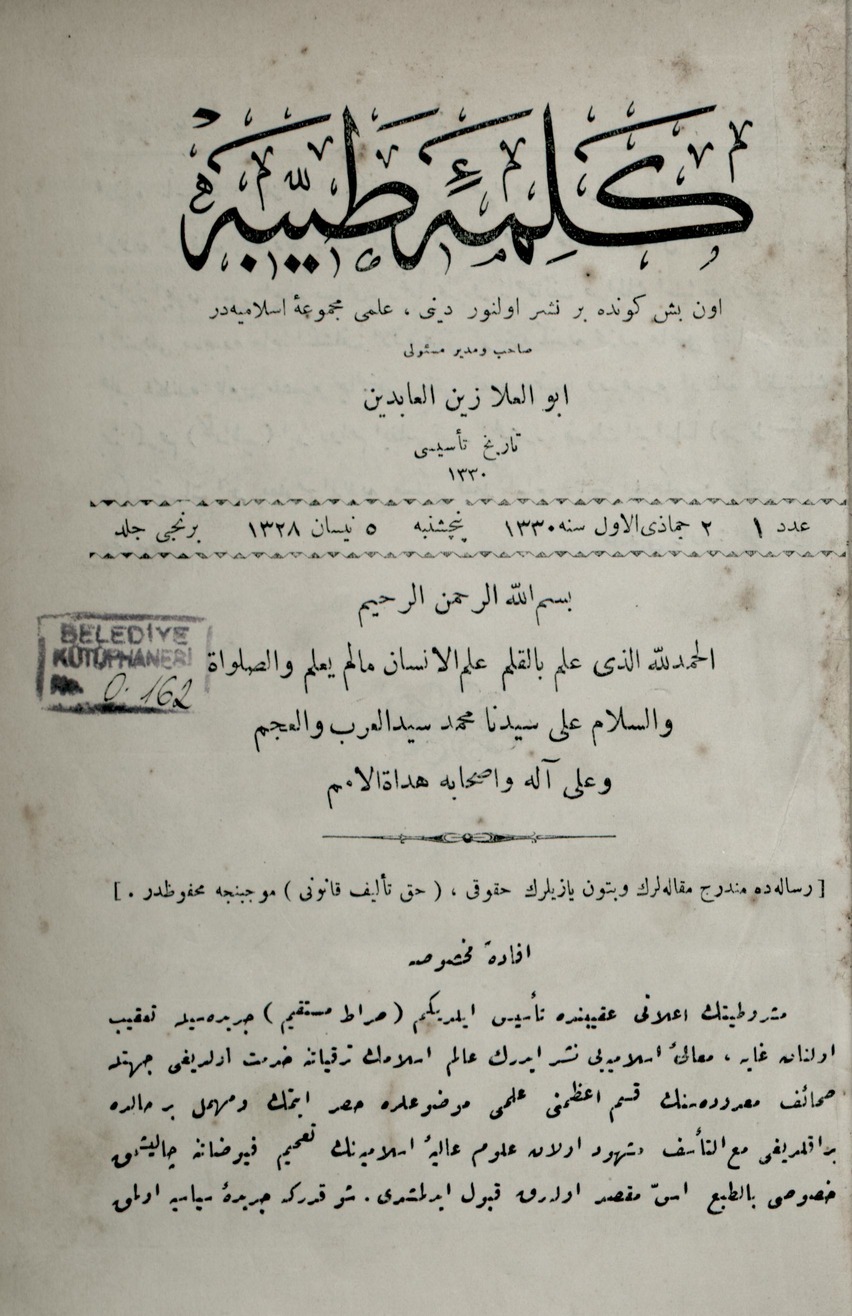 كلمۀ طيبه
اون بش كونده بر نشر اولنور دينى ، علمى مجموعۀ اسلاميه‌در
صاحب ومدير مسئولى
ابو العلا زين العابدين
تاريخ تأسيسى
١٣٣٠
عدد ١ ٢ جماذى‌الاول سنه ١٣٣٠ پنچشنبه ٥ نيسان ١٣٢٨ برنجى جلد
بسم‌الله الرحمن الرحيم
الحمدلله الذى علم بالقلم علم‌الانسان مالم يعلم والصلواة
BELEDİYE
KÜTÜPHANESİ
No. 0.162
والسلام على سيدنا محمد سيدالعرب والعجم
وعلى آله واصحابه هداةالامم
[ رساله‌ده مندرج مقاله‌لرك وبتون يازيلرك حقوقى ، ( حق تأليف قانونى ) موجبنجه محفوظدر . ]
افادۀ مخصوصه
مشروطيتك اعلانى عقيبنده تأسيس ايلديكم ( صراط مستقيم ) جريده‌سيله تعقيب
اولنان غايه ، معالئ اسلاميه‌يى نشر ايدرك عالم اسلامك ترقياتنه خدمت اولديغى جهتله
صحائف معدوده‌سنك قسم اعظمنى علمى موضوعلره حصر ايتمك ومهمل بر حالده
براقلديغى مع‌التأسف مشهود اولان علوم عاليۀ اسلاميه‌نك تعميم فيوضاتنه چاليشمق
خصوصى بالطبع اسّ مقصد اوله‌رق قبول ايدلمشدى . شو قدركه جريدۀ سياسيه اولمق